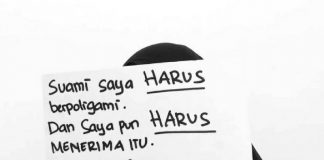 Suami saya HARUS
berpoligami.
Dan Saya pun HARUS
MENERIMA ITU.